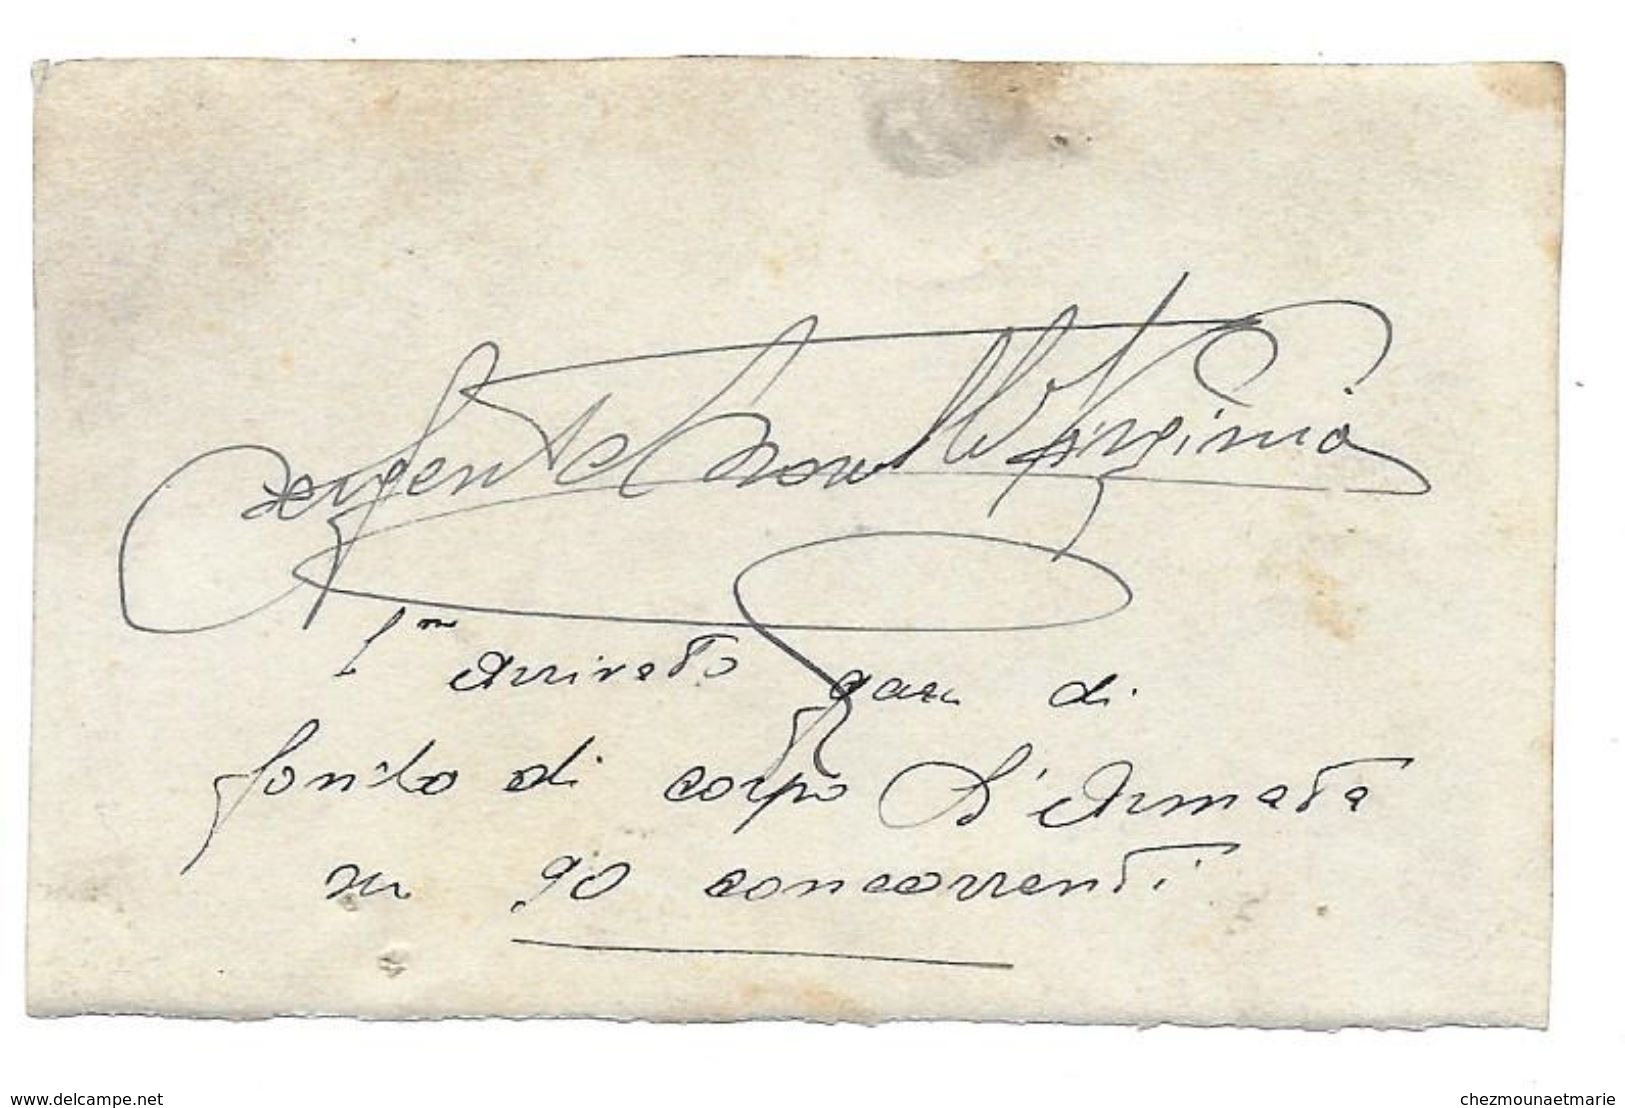 Sergente Virginio
1º arrivato gara di
fondo di corpo d'Armata
su 90 concorrenti
www.delcampe.net
chezmounaetmarie